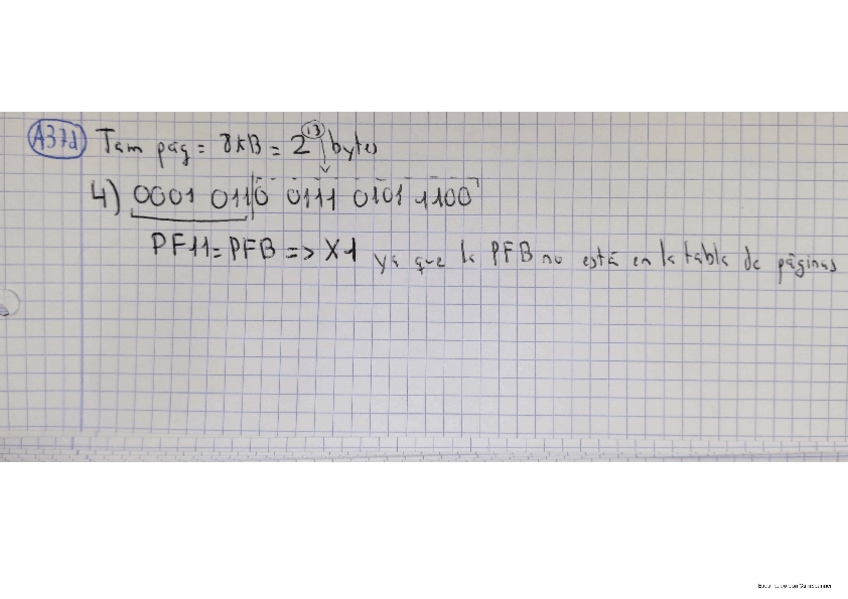 A37d) Tam pág = 8kB = 2^13 bytes
4) 0001 011|0 0111 0101 1100
PF11 = PFB => X1 ya que la PFB no está en la tabla de páginas